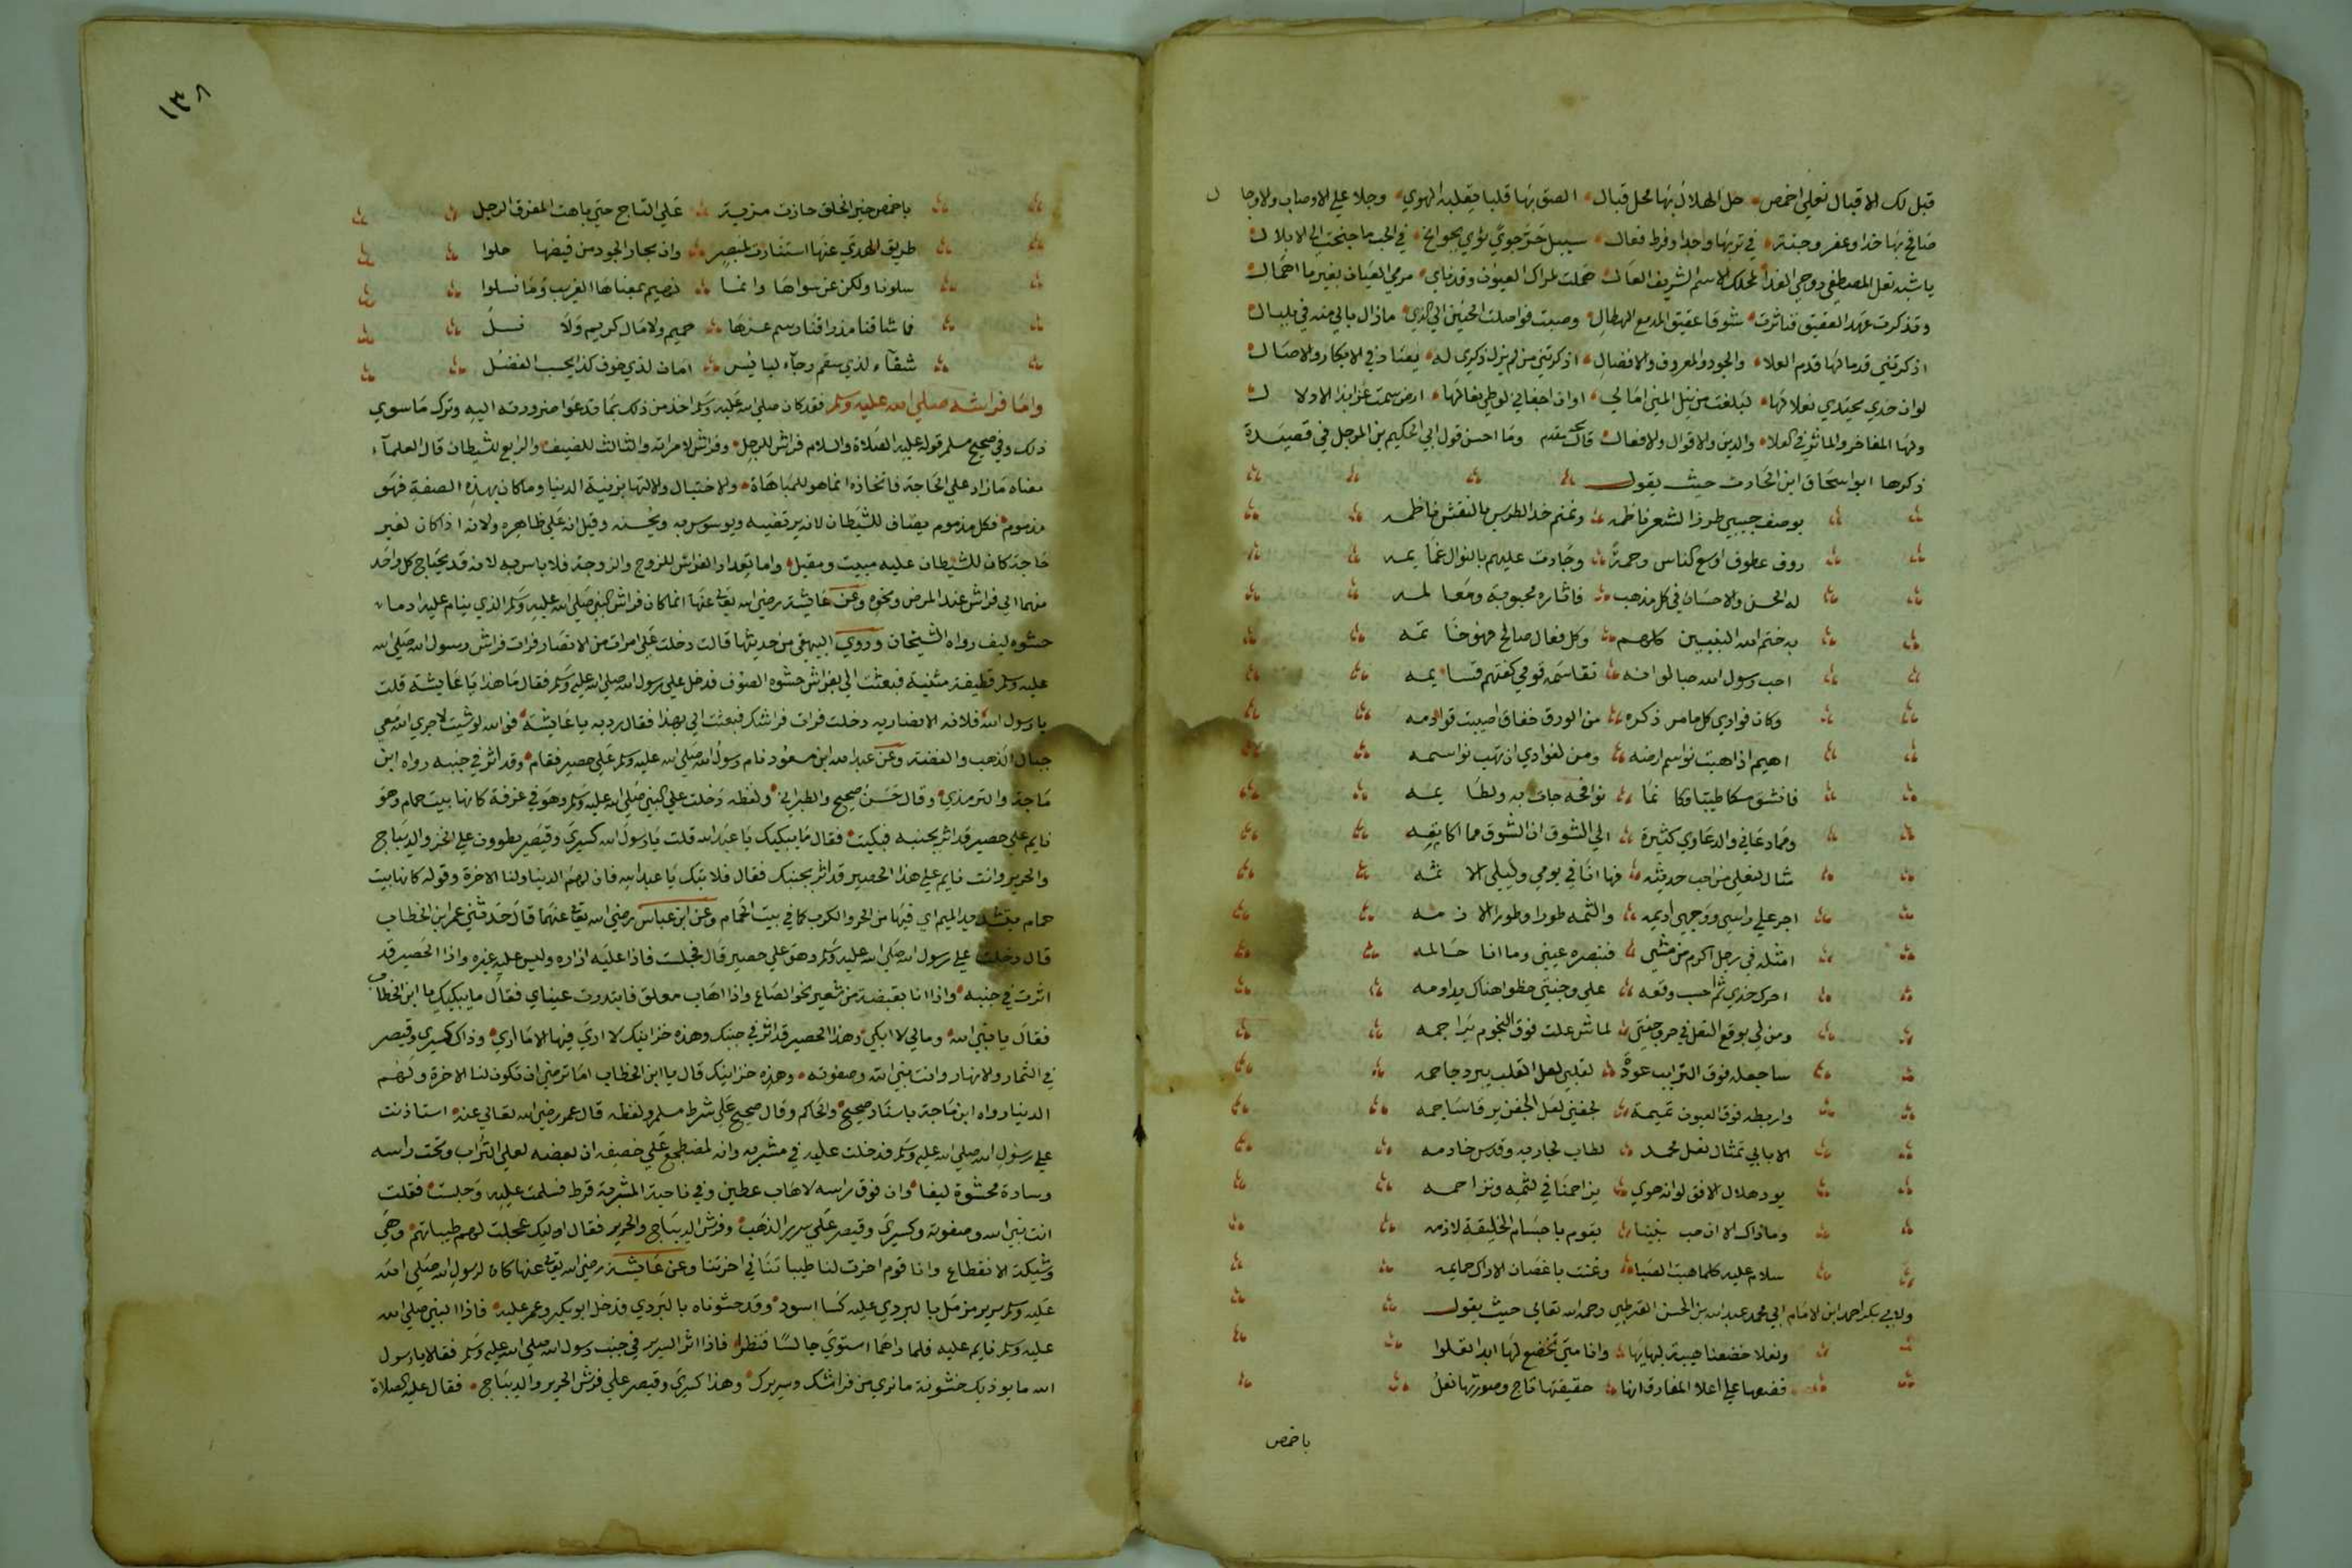 قبل لك الاقبال نعلي اخمص حل الهلال بها محل قبال الصق بها قلبا يقلبه الهوي وجلا علي الاوصاب والاوجا ل
صافح بها خدا وعفر وجنة في تربها وجدا وفرط فعال سيبل حر جوي ثوي بجوانح في الحب ما جنحت الي الابلال
يا شبه نعل المصطفي روحي الفدا لمحلك الاسم الشريف العال هملت لمراك العيون وقد ناي مرمي العيان بغير ما اهمال
وتذكرت عهد العقيق فناثرت شوقا عقيق المدمع الهطال وصبت فواصلت الحنين الي الذي مازال بالي منه في بلبال
اذكرتني قدما لها قدم العلا والجود والمعروف والافضال اذكرتني من لم يزل ذكري له يعتاد في الابكار والاصال
لوان خدي يحتذي نعلا لها لبلغت من نيل المني امالي اوان اجفاني لوطي نعالها ارض سمت عزا بذا الاذلا ل
ولها المفاخر والماثر في العلا والدين والاقوال والافعال وما احسن قول ابي الحكيم بن المرحل في قصيدة
ذكرها ابو اسحاق ابن الحارث حيث يقول
بوصف حبيبي طرز الشعر ناظمه ونمنم خد الطرس بالنقش ناظمه
روف عطوف اوسع الناس رحمة وجادت عليهم بالنوال غمايمه
له الحسن والاحسان في كل مذهب فاثاره محبوبة ومعالمه
به ختم الله النبيين كلهم وكل فعال صالح فهو خاتمه
احب رسول الله حبا لوانه تقاسمه قومي كفتهم قسايمه
وكان فوادي كل ما مر ذكره من الورق خفاق اصيبت قوادمه
اهيم اذا هبت نواسم ارضه ومن لفوادي ان تهب نواسمه
فانشق مسكا طيبا وكانما نوافحه جات به ولطايمه
ومما دعاني والدعاوي كثيرة الي الشوق ان الشوق مما اكاتمه
مثال لنعلي من احب حديثه فها انا في يومي وليلي الاثمه
اجر علي راسي ووجهي اديمه والثمه طورا وطورا الازمه
امثله في رجل اكرم من مشي فتبصره عيني وما انا حالمه
احرك خدي ثم احسب وقعه علي وجنتي خطوا هناك يداومه
ومن لي بوقع النعل في حر وجنتي لماش علت فوق النجوم براجمه
ساجعله فوق الترايب عوذة لقلبي لعل القلب يبرد جاحمه
واربطه فوق العيون تميمة لجفني لعل الجفن يرقا ساجمه
الا بابي تمثال نعل محمد لطاب لحاذيه وقدس خادمه
يود هلال الافق لوانه هوي يزاحمنا في لثمه ونزاحمه
وماذاك الا ان حب نبينا يقوم باجسام الخليقة لازمه
سلام عليه كلما هبت الصبا وغنت باغصان الاراك حمايمه
ولابي بكر احمد ابن الامام ابي محمد عبد الله بن الحسن القرطبي رحمه الله تعالي حيث يقول
ونعلا خضعنا هيبة لبهايها وانا متي نخضع لها ابدا نعلوا
فضعها علي اعلا المفارق انها حقيقتها تاج وصورتها نعل
باخمص
١٣٨
باخمص خير الخلق حازت مزية علي التاج حتي باهت المفرق الرجل
طريق الهدي عنها استنارت لمبصر وان بحار الجود من فيضها حلوا
سلونا ولكن عن سواها وانما نهيم بمغناها الغريب وما نسلوا
فما شاقنا مذ راقنا رسم عزها حميم ولا مال كريم ولا نسل
شفاء لذي سقم رجاء لبايس امان لذي خوف كذا يحسب الفضل
واما فراشه صلي الله عليه وسلم فقد كان صلي الله عليه وسلم اخذ من ذلك بما تدعوا ضرورته اليه وترك ما سوي
ذلك وفي صحيح مسلم قوله عليه الصلاة والسلام فراش للرجل وفراش لامراته والثالث للضيف والرابع للشيطان قال العلماء
معناه ما زاد علي الحاجة فاتخاذه انما هو للمباهاة والاختيال والالتها بزينة الدنيا وما كان بهذه الصفة فهو
مذموم وكل مذموم يضاف للشيطان لانه يرتضيه ويوسوس به ويحسنه وقيل انه علي ظاهره ولانه اذا كان لغير
حاجة كان للشيطان عليه مبيت ومقيل واما تعداد الفراش للزوج والزوجة فلا باس به لانه قد يحتاج كل واحد
منهما الي فراش عند المرض ونحوه وعن عايشة رضي الله تعالي عنها انما كان فراش النبي صلي الله عليه وسلم الذي ينام عليه ادما
حشوه ليف رواه الشيخان وروي البيهقي من حديثها قالت دخلت علي امراة من الانصار فرات فراش رسول الله صلي الله
عليه وسلم قطيفة مثنية فبعثت الي بفراش حشوه الصوف فدخل علي رسول الله صلي الله عليه وسلم فقال ما هذا يا عايشة قلت
يا رسول الله فلانة الانصارية دخلت فرات فراشك فبعثت الي بهذا فقال رديه يا عايشة فوالله لو شيت لاجري الله معي
جبال الذهب والفضة وعن عبد الله ابن مسعود نام رسول الله صلي الله عليه وسلم علي حصير فقام وقد اثر في جنبه رواه ابن
ماجة والترمذي وقال حسن صحيح والطبراني ولفظه دخلت علي النبي صلي الله عليه وسلم وهو في غرفة كانها بيت حمام وهو
نايم علي حصير قد اثر بجنبه فبكيت فقال ما يبكيك يا عبد الله قلت يا رسول الله كسري وقيصر يطوون علي الخز والديباج
والحرير وانت نايم علي هذا الحصير قد اثر بجنبك فقال فلا تبك يا عبد الله فان لهم الدنيا ولنا الاخرة وقوله كانها بيت
حمام بتشديد الميم اي فيها من الحر والكرب كما في بيت الحمام وعن ابن عباس رضي الله تعالي عنهما قال حدثني عمر ابن الخطاب
قال دخلت علي رسول الله صلي الله عليه وسلم وهو علي حصير قال فجلست فاذا عليه ازاره وليس عليه غيره واذا الحصير قد
اثرت في جنبه واذا انا بقبضة من شعير نحو الصاع واذا اهاب معلق فابتدرت عيناي فقال ما يبكيك يا ابن الخطاب
فقال يا نبي الله ومالي لا ابكي وهذا الحصير قد اثر في جنبك وهذه خزاينك لا اري فيها الا ما اري وذاك كسري وقيصر
في الثمار والانهار وانت نبي الله وصفوته وهذه خزاينك قال يا ابن الخطاب اما ترضي ان تكون لنا الاخرة ولهم
الدنيا رواه ابن ماجة باسناد صحيح والحاكم وقال صحيح علي شرط مسلم ولفظه قال عمر رضي الله تعالي عنه استاذنت
علي رسول الله صلي الله عليه وسلم فدخلت عليه في مشربه وانه لمضطجع علي خصفه ان بعضه لعلي التراب وتحت راسه
وسادة محشوة ليفا وان فوق راسه لاهاب عطين وفي ناحية المشربة قرظ فسلمت عليه وجلست فقلت
انت نبي الله وصفوته وكسري وقيصر علي سرير الذهب وفرش الديباج والحرير فقال اوليك عجلت لهم طيباتهم وهي
وشيكة الانقطاع وانا قوم اخرت لنا طيباتنا في اخرتنا وعن عايشة رضي الله تعالي عنها كان لرسول الله صلي الله
عليه وسلم سرير مزمل بالبردي عليه كسا اسود وقد حشوناه بالبردي فدخل ابو بكر وعمر عليه فاذا النبي صلي الله
عليه وسلم نايم عليه فلما راهما استوي جالسا فنظرا فاذا اثر السرير في جنب رسول الله صلي الله عليه وسلم فقالا يا رسول
الله ما يوذيك خشونة ما نري من فراشك وسريرك وهذا كسري وقيصر علي فرش الحرير والديباج فقال عليه الصلاة